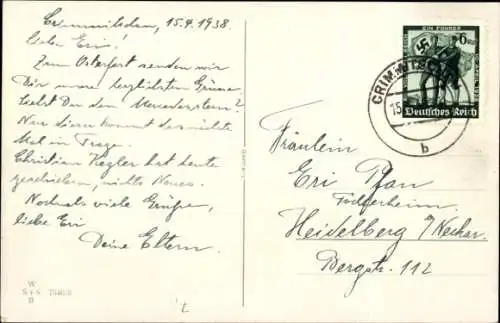 Crimmitschau, 15.4.1938.
Liebe Eri!
Zum Osterfest senden wir
Dir unsere herzlichsten Grüsse.
Liebst Du den
Nur dieser kommt das nächste
Mal in Frage.
Christian Kegler hat heute
geschrieben, nichts Neues.
Nochmals viele Grüße,
liebe Eri
Deine Eltern.
EIN FÜHRER
6
Deutsches Reich
CRIMMITSCHAU
15.
b
Fräulein
Eri Pfan
Heidelberg a/Neckar.
Bergstr. 112
W
S+S
B
t